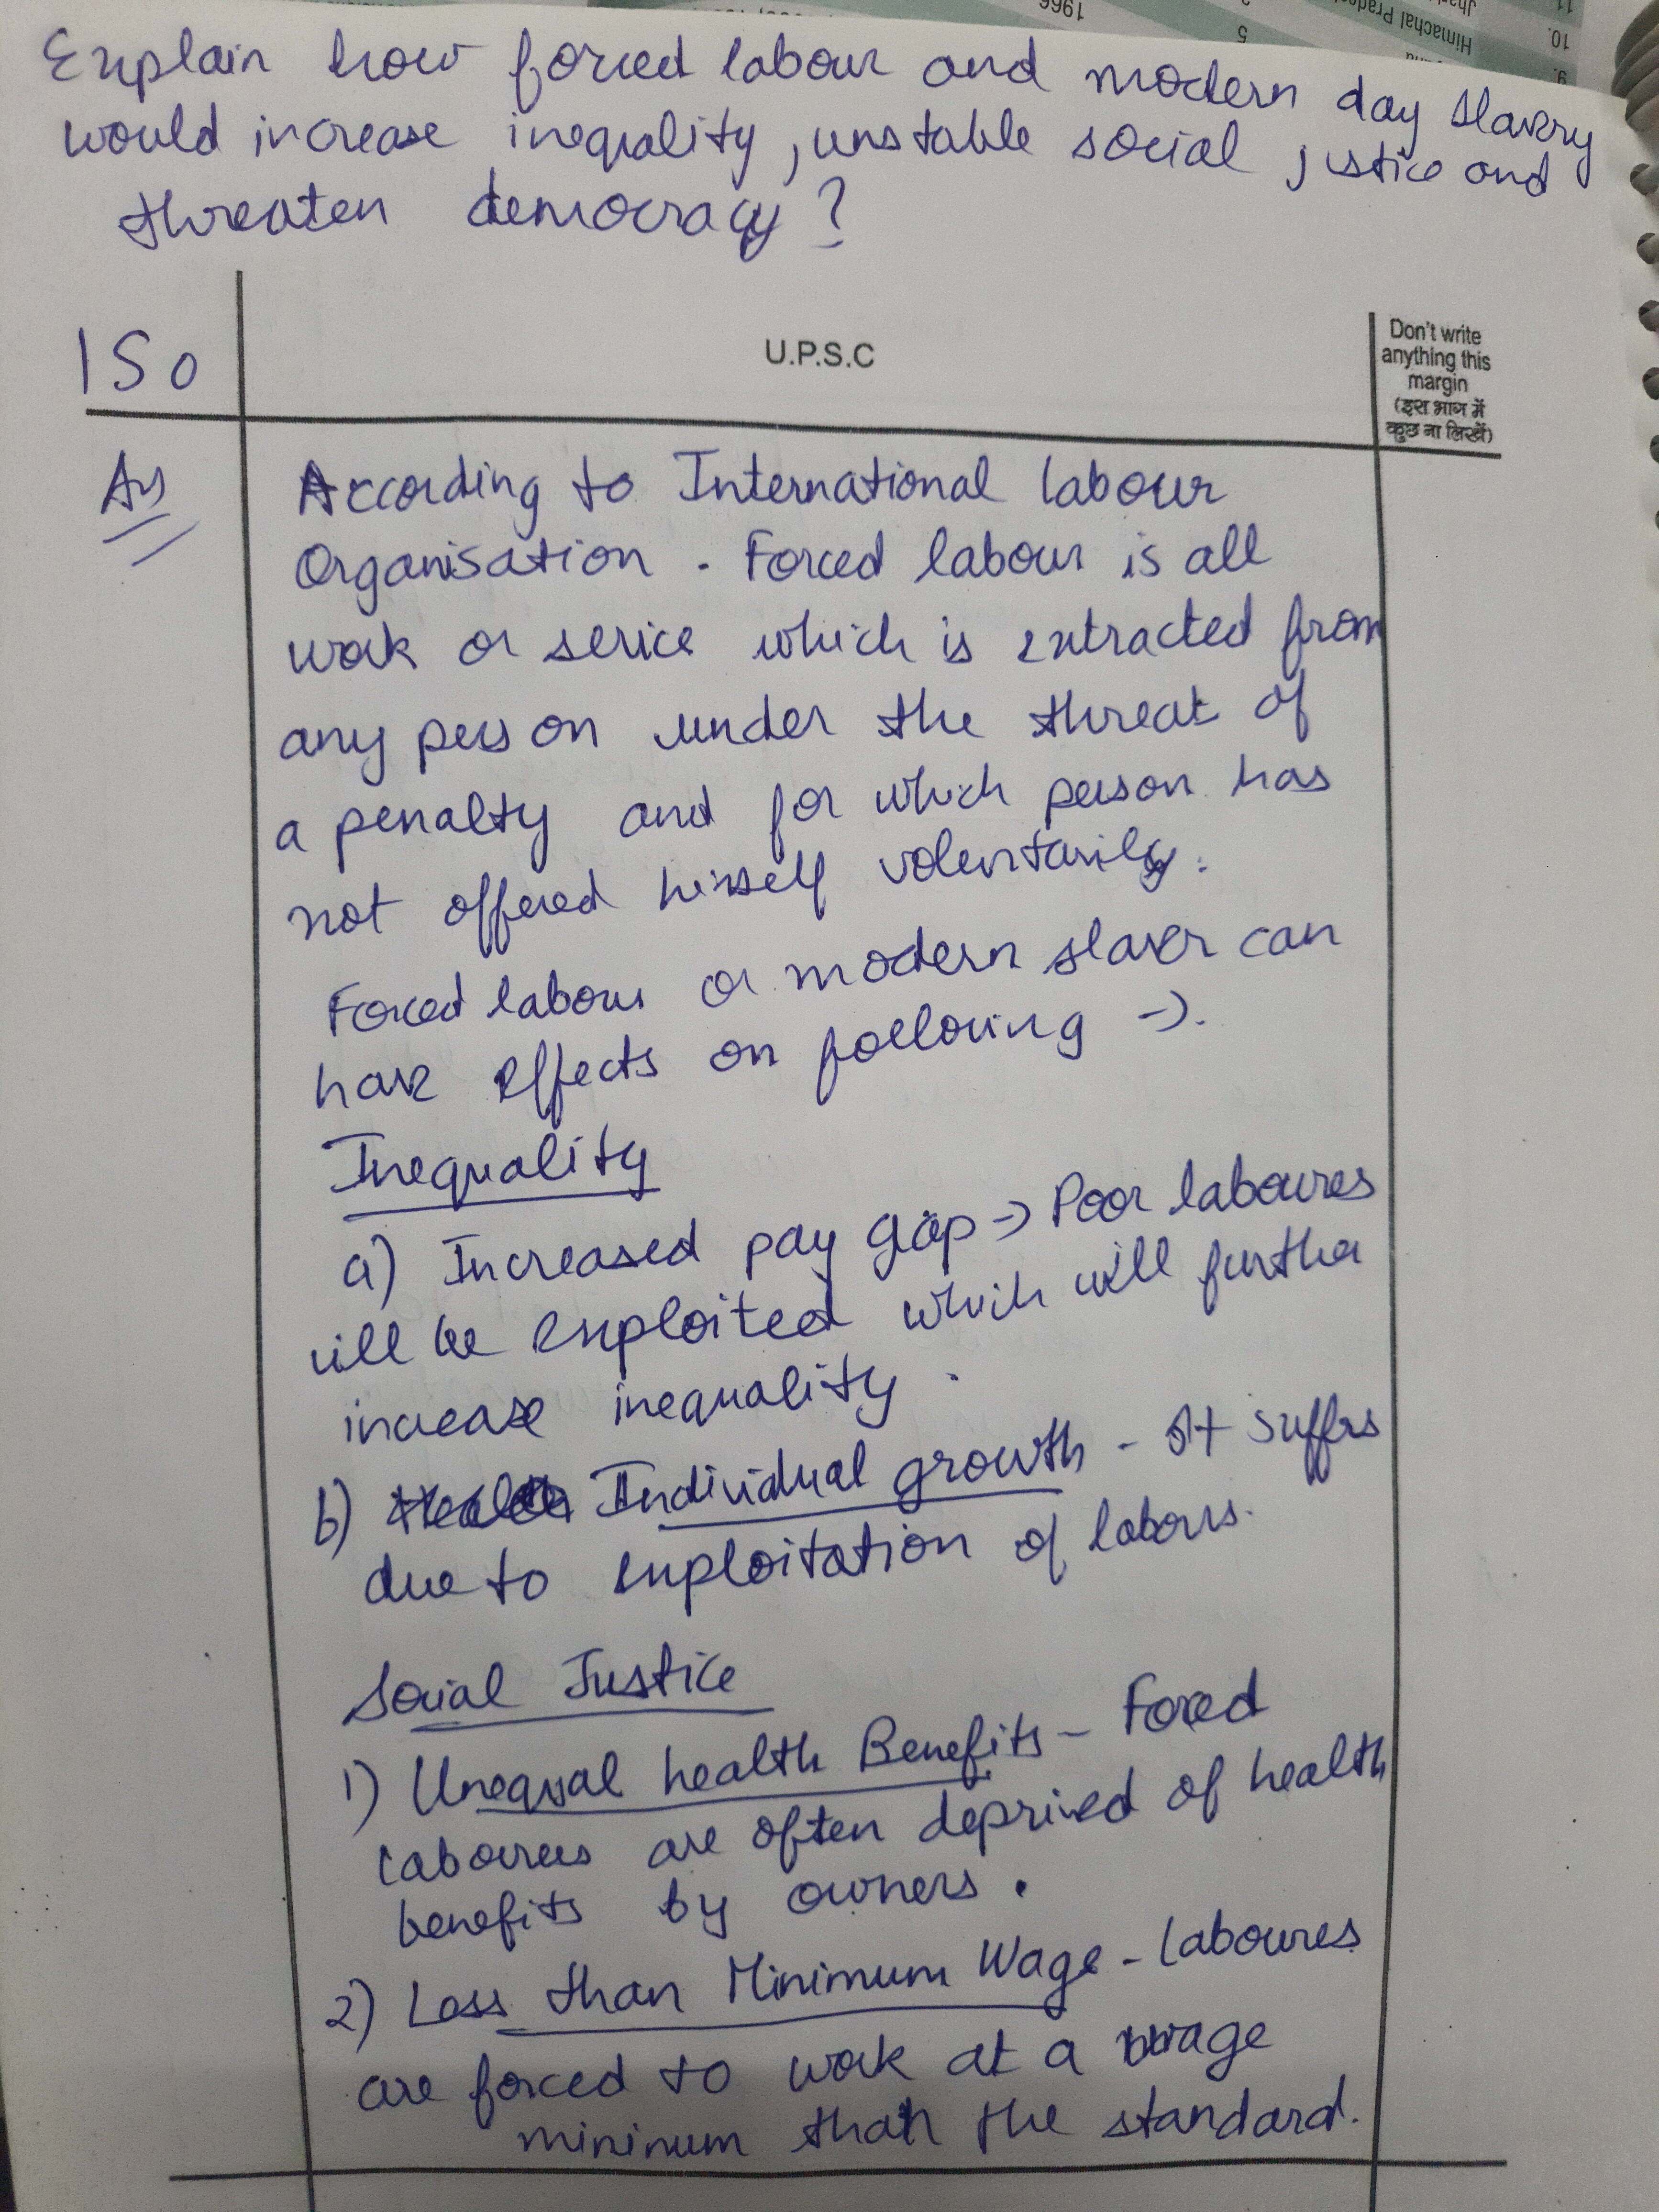 Explain how forced labour and modern day slavery
would increase inequality, unstable social justice and
threaten democracy?
150
U.P.S.C
Don't write
anything this
margin
(इस भाग में
कुछ ना लिखें)
Ans
According to International labour
Organisation. Forced labour is all
work or serice which is extracted from
any person under the threat of
a penalty and for which person has
not offered himself voluntarily.
Forced labour or modern slaver can
have effects on following →.
Inequality
a) Increased pay gap → Poor laboures
will be exploited which will further
increase inequality.
b) Individual growth - It suffers
due to exploitation of labours.
Social Justice
1) Unequal health Benefits - Forced
labourers are often deprived of health
benefits by owners.
2) Less than Minimum Wage - laboures
are forced to work at a wage
mininum than the standard.
1966
5
Himachal Pradesh
10.
11.
9.